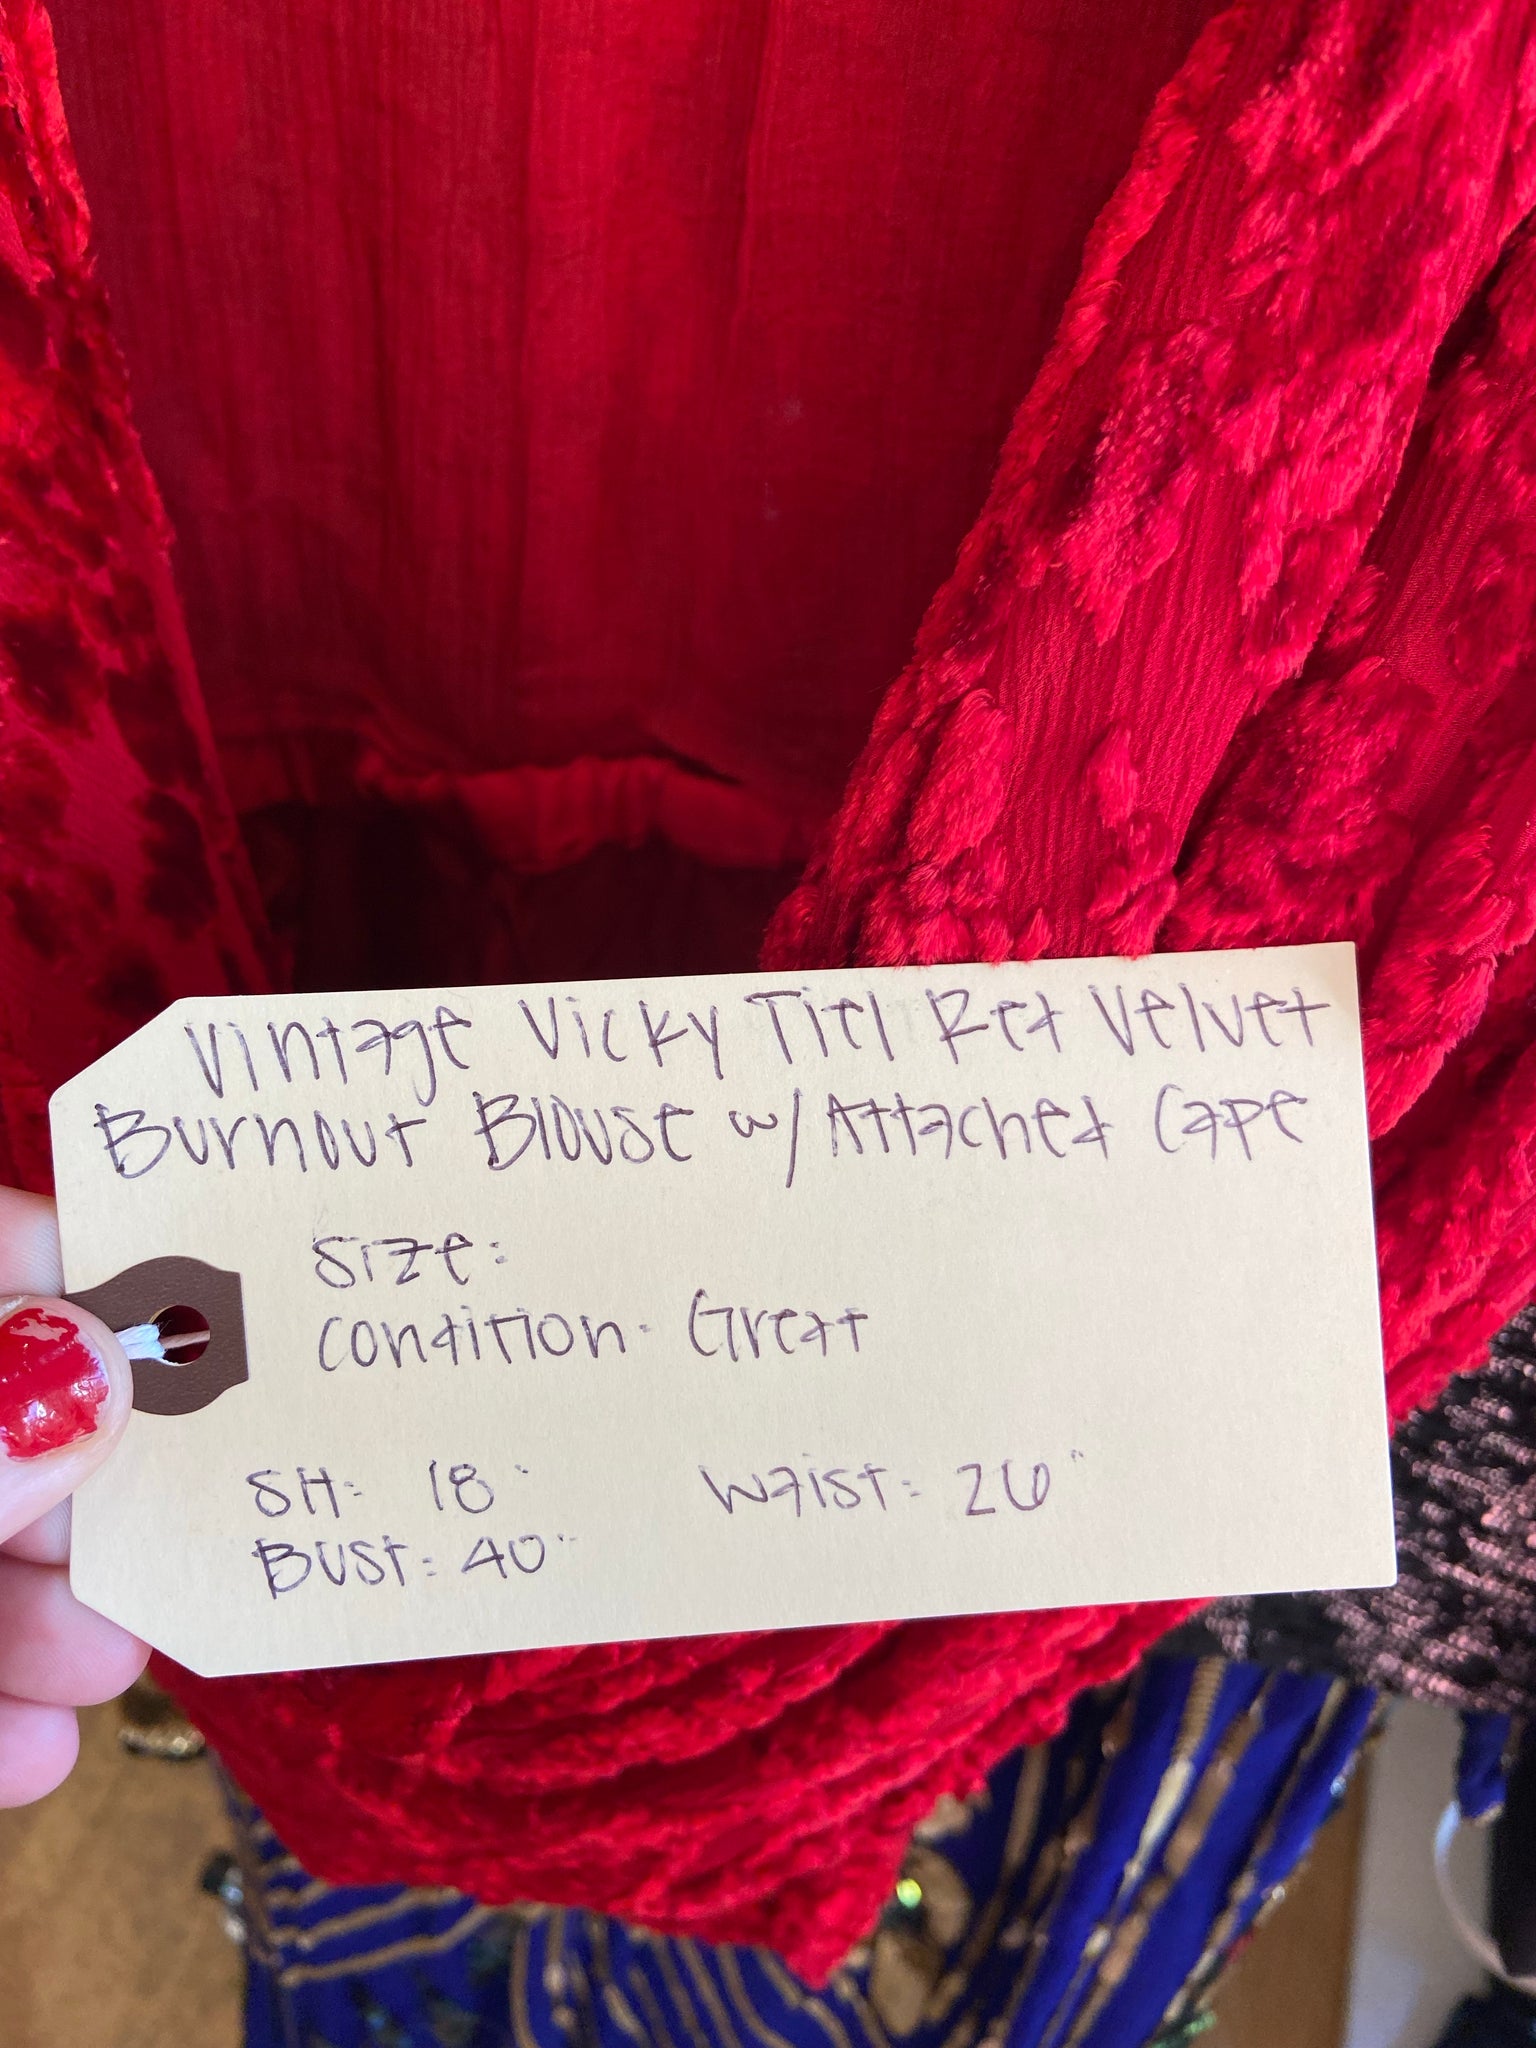 Vintage Vicky Tiel Red Velvet
Burnout Blouse w/ Attached Cape
Size:
Condition: Great
SH: 18"
Waist: 26"
Bust: 40"